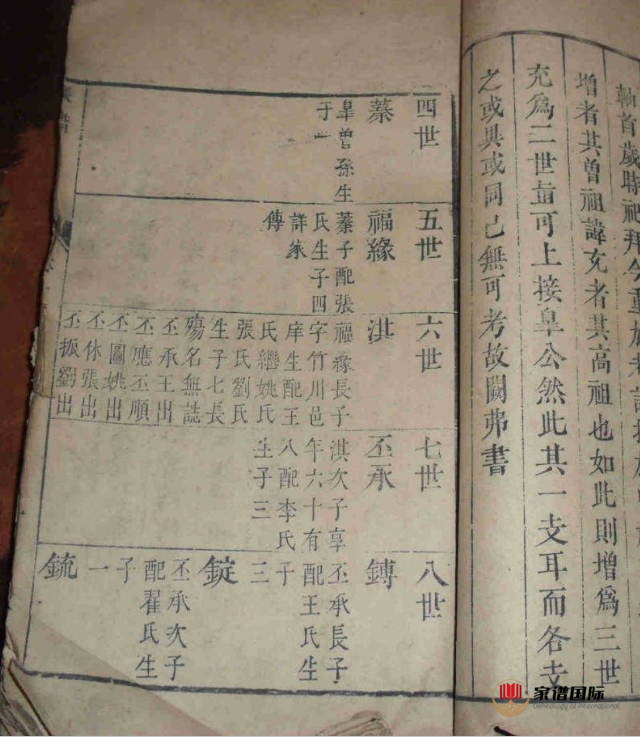 軌首歲時祀拜
增者其曾祖諱充者其高祖也如此則增爲三世
充爲二世查可上接皐公然此其一支耳而各支
之或具或同已無可考故闕弗書
四世
蓁
皐曾孫生
子一
五世
福緣
蓁子配張
氏生子四
詳家
傳
六世
淇
福緣長子
字竹川邑
庠生配王
氏繼姚氏
張氏劉氏
生子七長
殤名無誌
丕承王出
丕應丕順
丕圖姚出
丕休張出
丕振劉出
七世
丕承
淇次子享
年六十有
八配李氏
生子三
八世
鏄
丕承長子
配王氏生
子
三
錠
丕承次子
配翟氏生
子
一
鋶
家谱国际
Genealogy of International